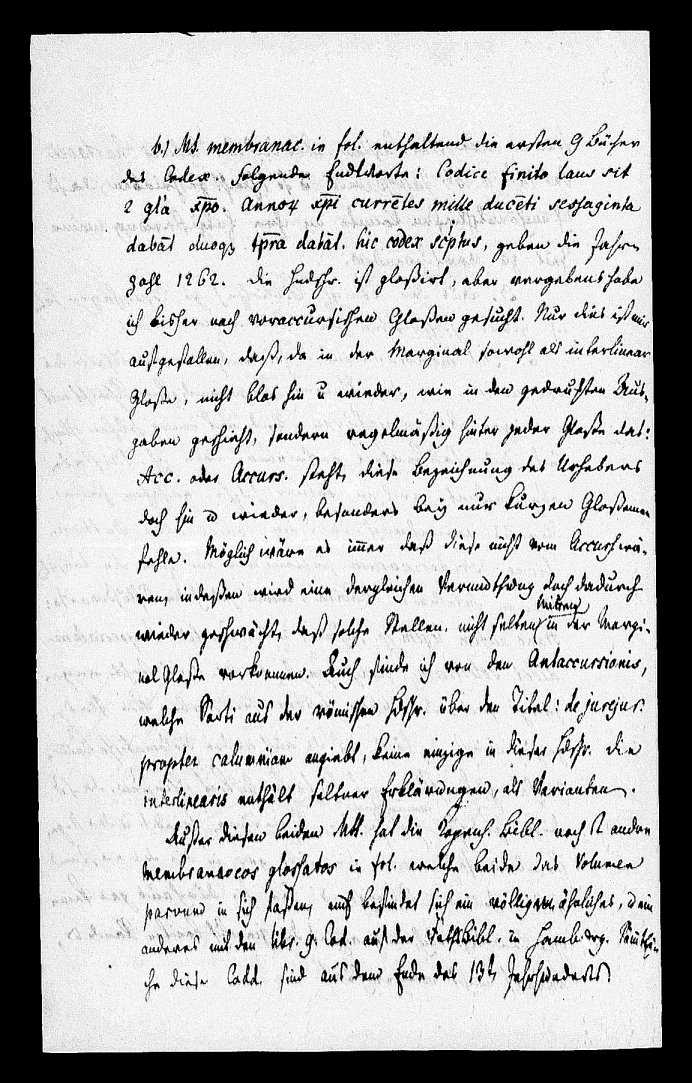 b.) MS. membranac. in fol. enthaltend die ersten 9 Bücher
des Codex. Folgende Endworte: Codice finito laus sit
2 gl'a xp̄o. Anno xp̄i currētes mille ducēti sessaginta
dabāt duoq₃ tp̄ra datāt. hic codex sc'ptus, geben die Jahr-
zahl 1262. Die Hndschr. ist gloßirt, aber vergebens habe
ich bisher nach voraccursischen Gloßen gesucht. Nur dies ist mir
aufgefallen, daß, da in der Marginal sowohl als interlinear
Gloße, nicht blos hin u wieder, wie in den gedruckten Aus-
gaben geschieht, sondern regelmäßig hinter jeder Gloße das:
Acc. oder Accurs. steht, diese Bezeichnung des Urhebers
doch hin u wieder, besonders bey nur kurzen Gloßemen
fehle. Möglich wäre es immer daß diese nicht vom Accursh wä-
ren, indeßen wird eine dergleichen Vermuthung doch dadurch
wieder geschwächt, daß solche Stellen nicht selten mitten in der Margi-
nal Gloße vorkommen. Auch finde ich von den Antaccursionis,
welche Sarti aus der römischen Hdschr. über den Titel: de jurejur.
propter calumniam angiebt, keine einzige in dieser Hdschr. die
interlinearis enthält seltner Erklärungen, als Varianten.
Außer diesen beiden MSS. hat die Kopenh. Bibl. noch 2 andre
membranaceos glossatos in fol. welche beide das Volumen
parvum in sich faßen, auch befindet sich ein völlig ähnliches, u ein
anderes mit den libr. 9. Cod. auf der Bibl. in Hamburg. Sämtli-
che diese Codd. sind aus dem Ende des 13t. Jahrhunderts.